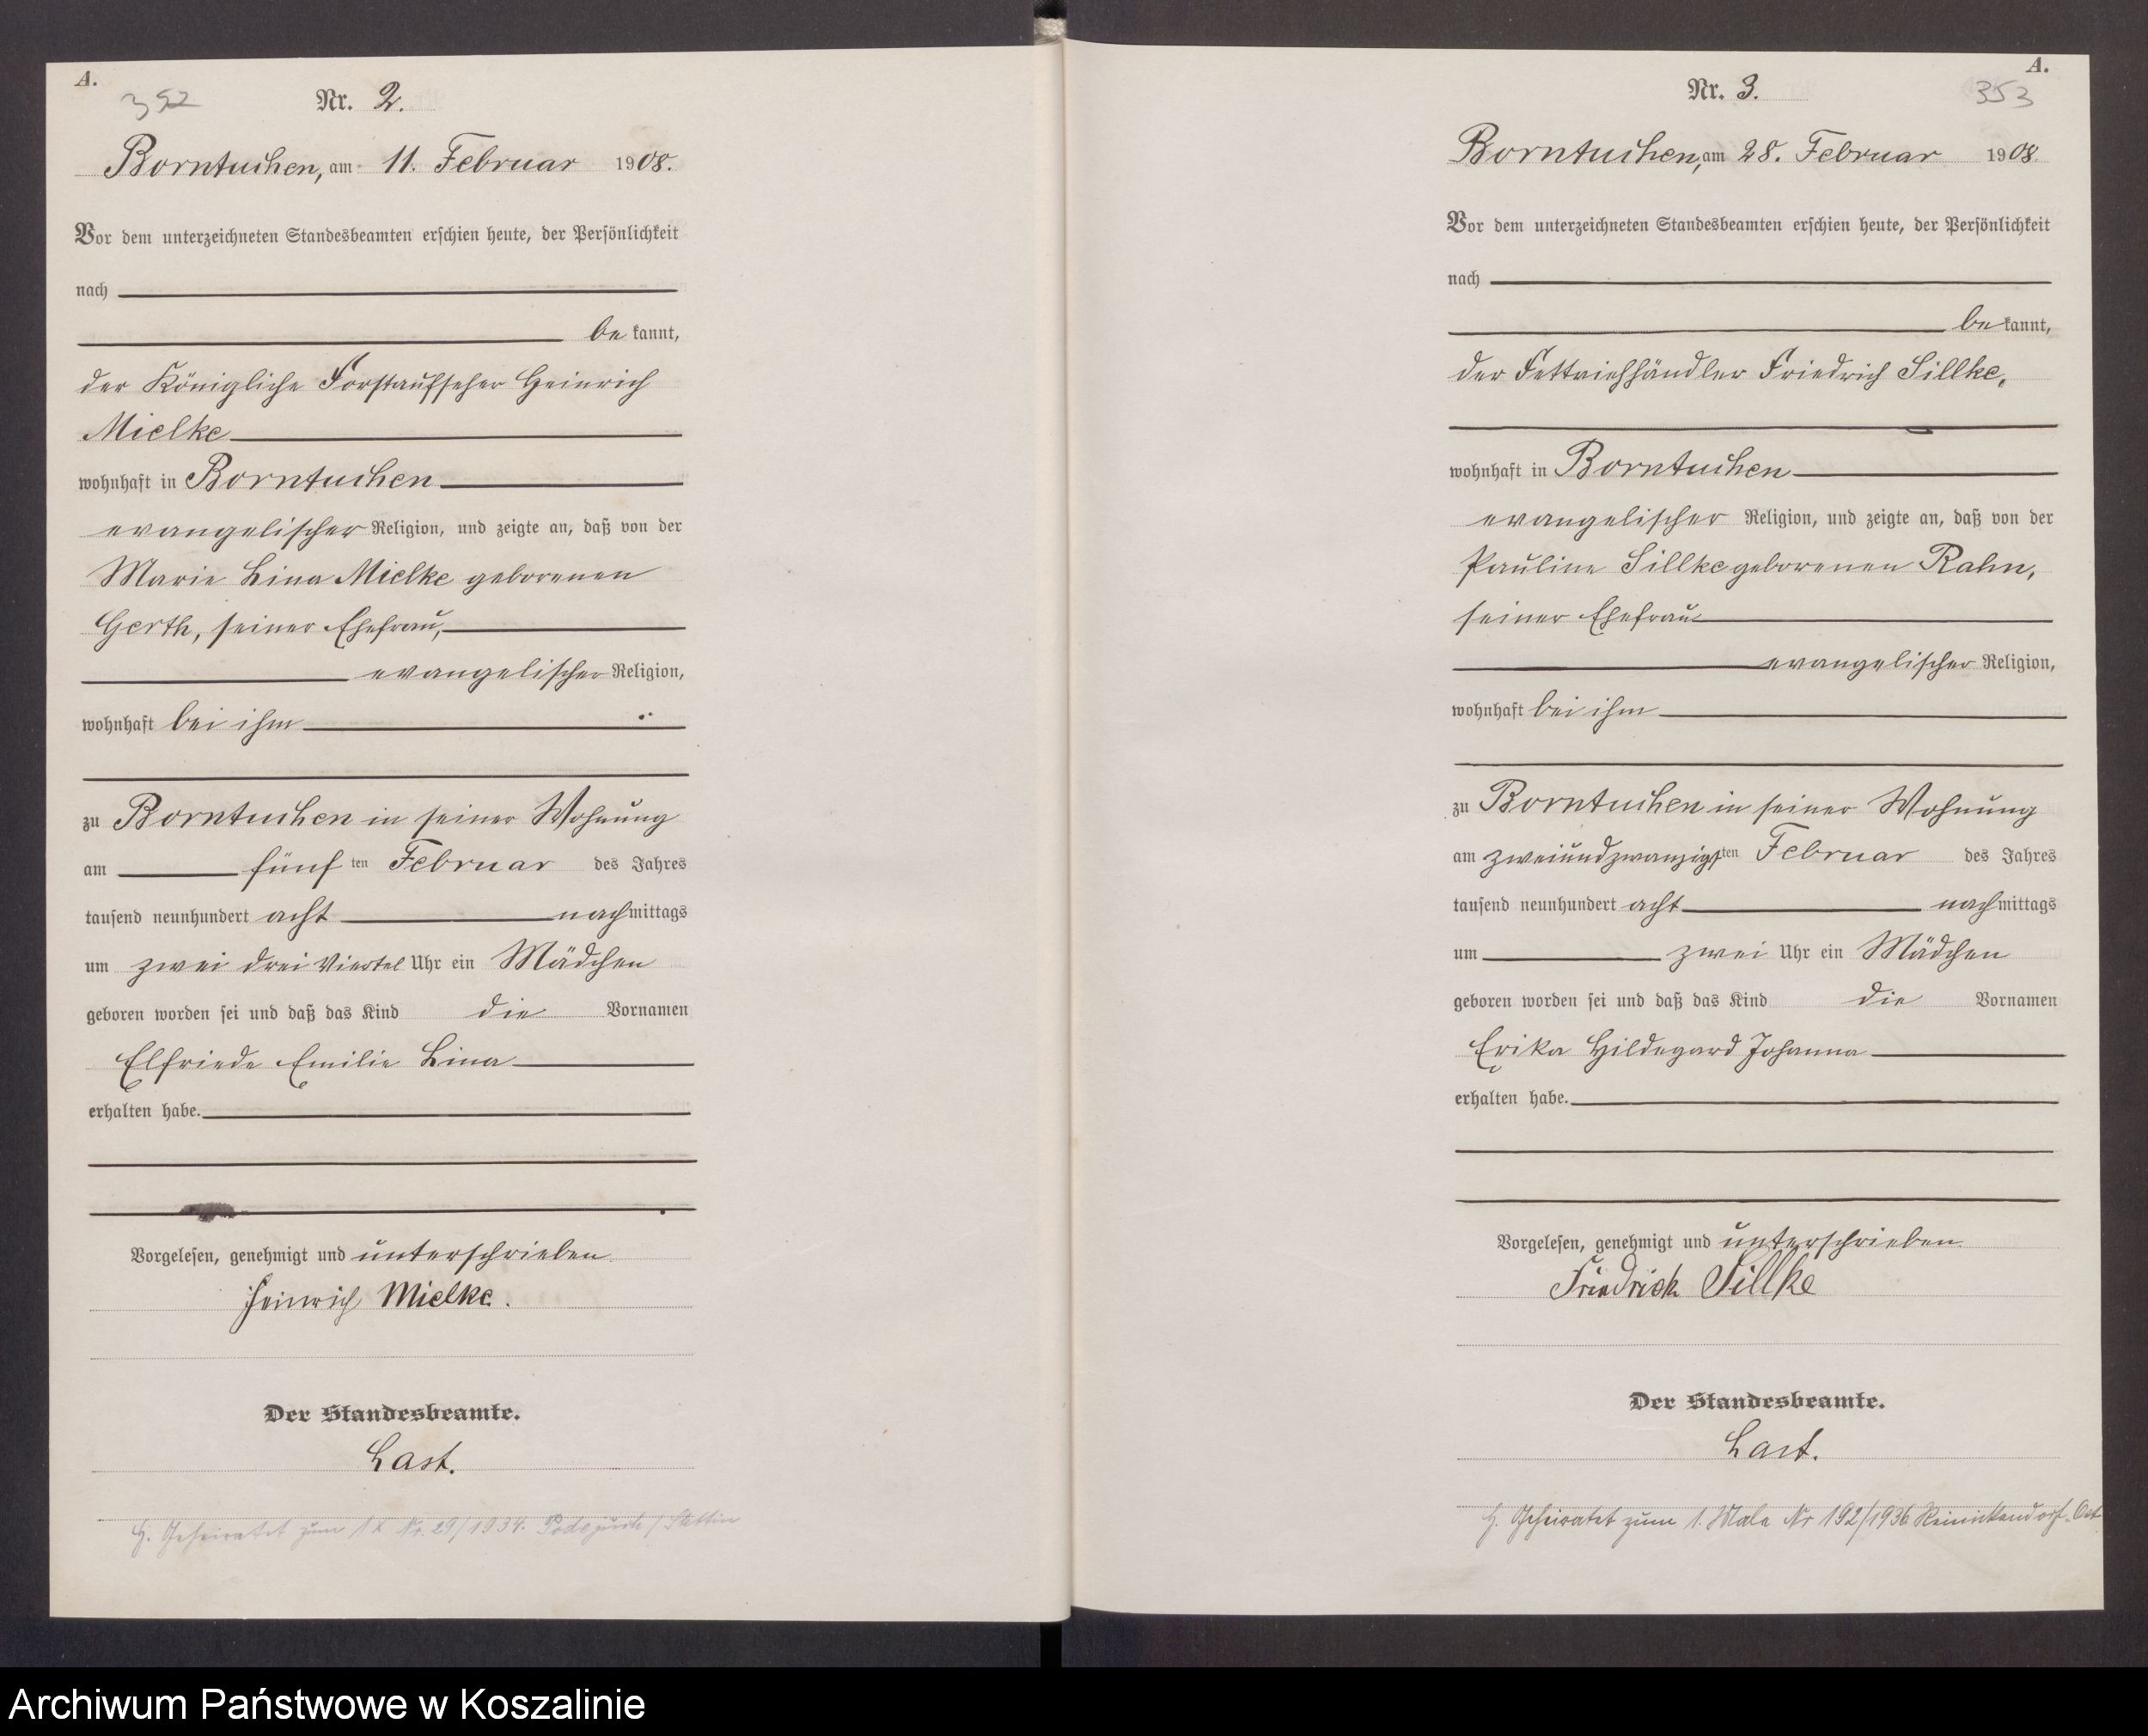 A.
352
Nr. 2.
Borntuchen, am 11. Februar 1908.
Vor dem unterzeichneten Standesbeamten erschien heute, der Persönlichkeit
nach
be kannt,
der Königliche Forstaufseher Heinrich
Mielke
wohnhaft in Borntuchen
evangelischer Religion, und zeigte an, daß von der
Marie Lina Mielke geborenen
Gerth, seiner Ehefrau,
evangelischer Religion,
wohnhaft bei ihm
zu Borntuchen in seiner Wohnung
am fünf ten Februar des Jahres
tausend neunhundert acht nachmittags
um zwei drei Viertel Uhr ein Mädchen
geboren worden sei und daß das Kind die Vornamen
Elfriede Emilie Lina
erhalten habe.
Vorgelesen, genehmigt und unterschrieben
Heinrich Mielke.
Der Standesbeamte.
Last.
H. Geheiratet zum 1 x Nr. 29/1934. Podejuch / Stettin
A.
Nr. 3.
353
Borntuchen, am 28. Februar 1908.
Vor dem unterzeichneten Standesbeamten erschien heute, der Persönlichkeit
nach
be kannt,
der Fettviehhändler Friedrich Sillke,
wohnhaft in Borntuchen
evangelischer Religion, und zeigte an, daß von der
Pauline Sillke geborenen Rahn,
seiner Ehefrau
evangelischer Religion,
wohnhaft bei ihm
zu Borntuchen in seiner Wohnung
am zweiundzwanzigsten Februar des Jahres
tausend neunhundert acht nachmittags
um zwei Uhr ein Mädchen
geboren worden sei und daß das Kind die Vornamen
Erika Hildegard Johanna
erhalten habe.
Vorgelesen, genehmigt und unterschrieben.
Friedrich Sillke
Der Standesbeamte.
Last.
H. Geheiratet zum 1. Male Nr 192/1936 Reinickendorf-Ost
Archiwum Państwowe w Koszalinie